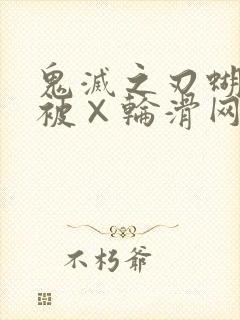 鬼滅之刃蝴
被X輪滑网
不朽爺